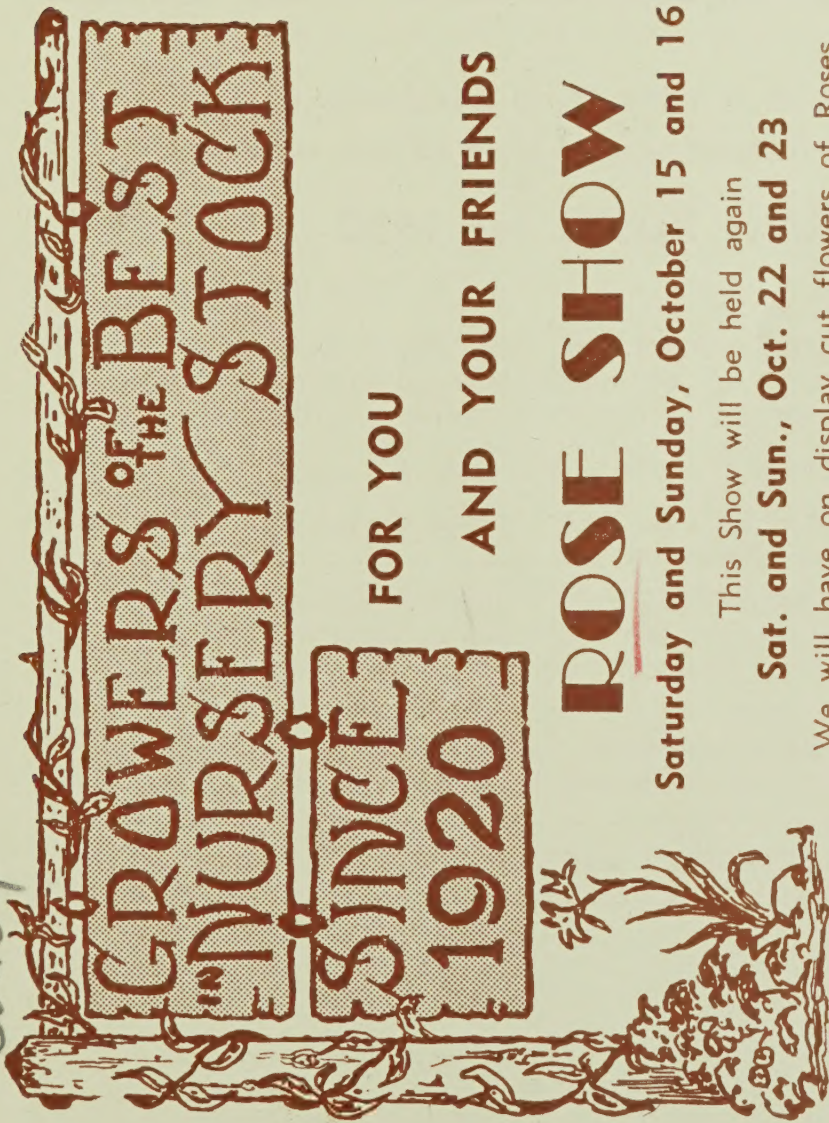 GROWERS OF THE BEST
IN NURSERY STOCK
SINCE
1920
FOR YOU
AND YOUR FRIENDS
ROSE SHOW
Saturday and Sunday, October 15 and 16
This Show will be held again
Sat. and Sun., Oct. 22 and 23
We will have on display cut flowers of Roses